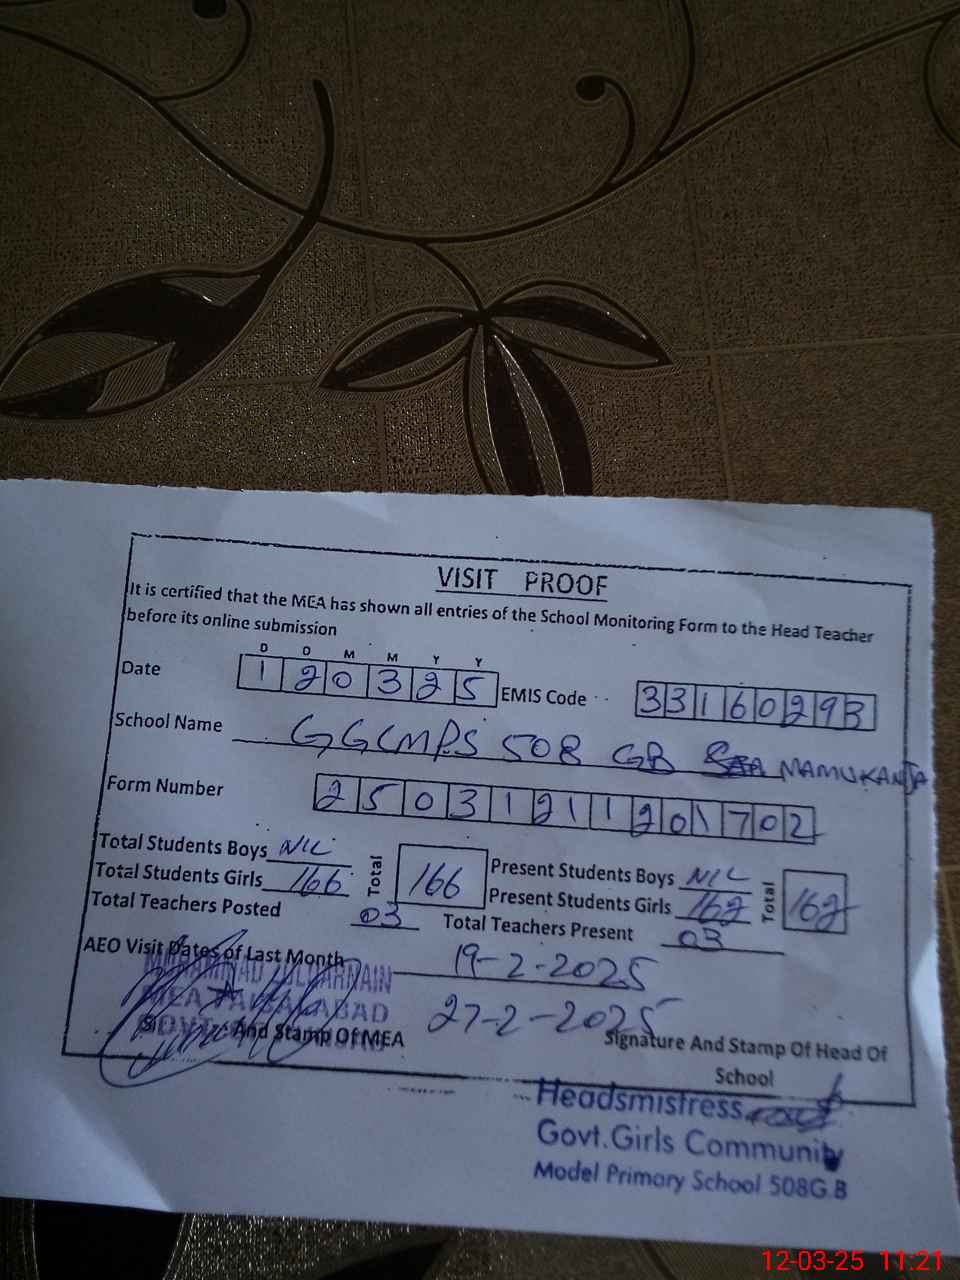 VISIT PROOF
It is certified that the MEA has shown all entries of the School Monitoring Form to the Head Teacher
before its online submission
D D M M Y Y
Date 120325 EMIS Code 33160293
School Name GGCMPS 508 GB MAMUKANJA
Form Number 25031211201702
Total Students Boys NIL Total 166 Present Students Boys NIL Total 162
Total Students Girls 166 Present Students Girls 162
Total Teachers Posted 03 Total Teachers Present 03
AEO Visit Dates of Last Month 19-2-2025
27-2-2025
MUHAMMAD ZULQARNAIN
MEA FAISALABAD
And Stamp Of MEA
Signature And Stamp Of Head Of
School
Headsmistress
Govt.Girls Community
Model Primary School 508G.B
12-03-25 11:21